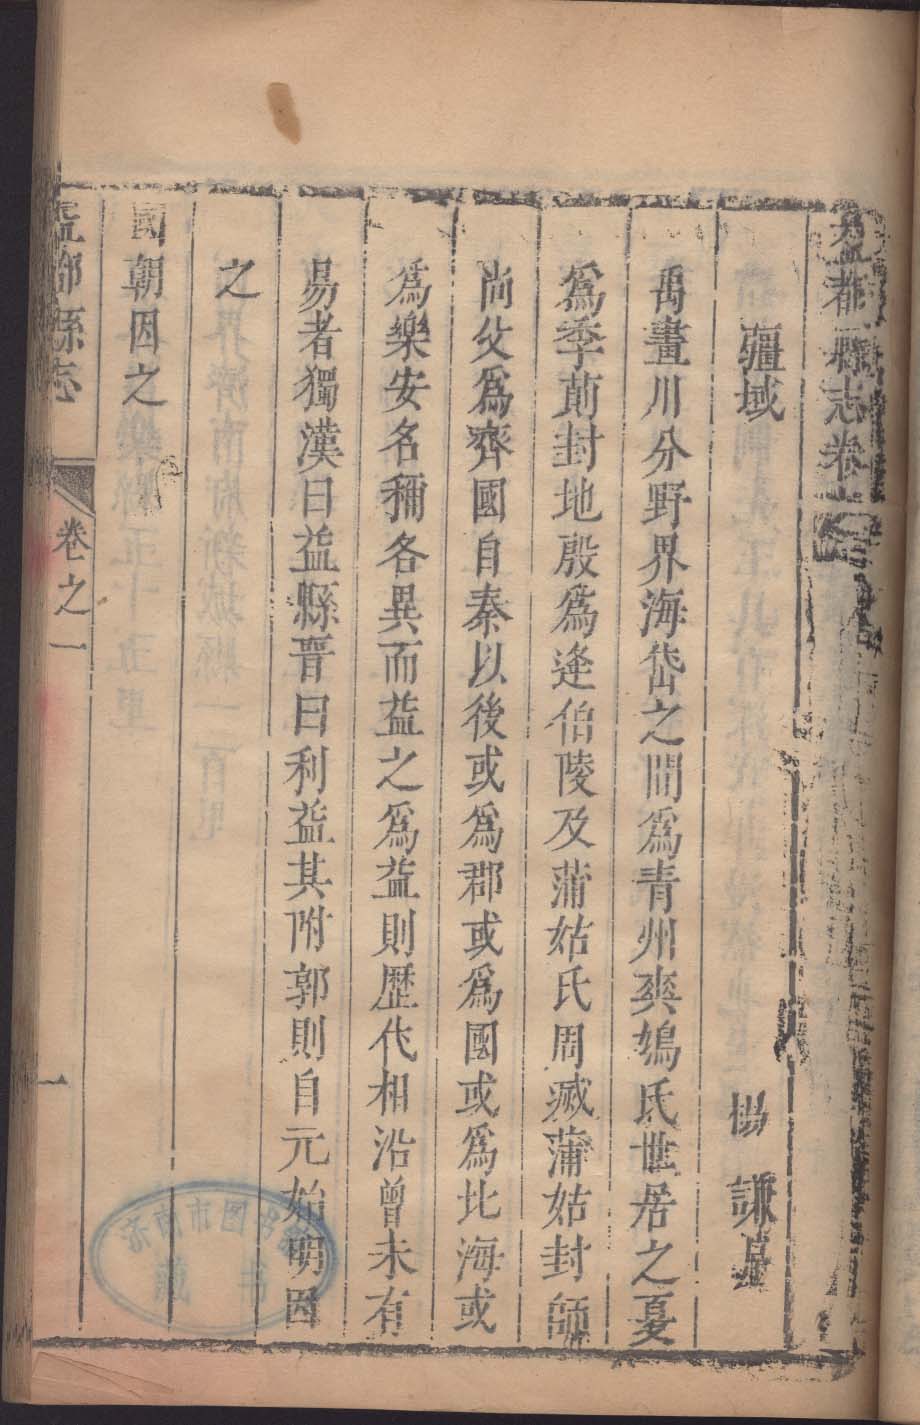 益都縣志卷
疆域
楊 謙
禹畫川分野界海岱之間爲青州爽鳩氏世居之夏
爲季萴封地殷爲逄伯陵及蒲姑氏周滅蒲姑封師
尚父爲齊國自秦以後或爲郡或爲國或爲北海或
爲樂安名稱各異而益之爲益則歴代相沿曾未有
易者獨漢曰益縣晋曰利益其附郭則自元始明因
之
國朝因之
益都縣志
卷之一
一